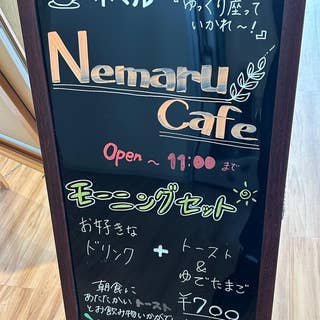 ネマル
『ゆっくり座って
いかれ〜！』
Nemaru
Cafe
Open 〜 11:00 まで
モーニングセット
お好きな
ドリンク
+
トースト
&
ゆでたまご
¥700
朝食に
あたたかいトースト
とお飲み物いかがで